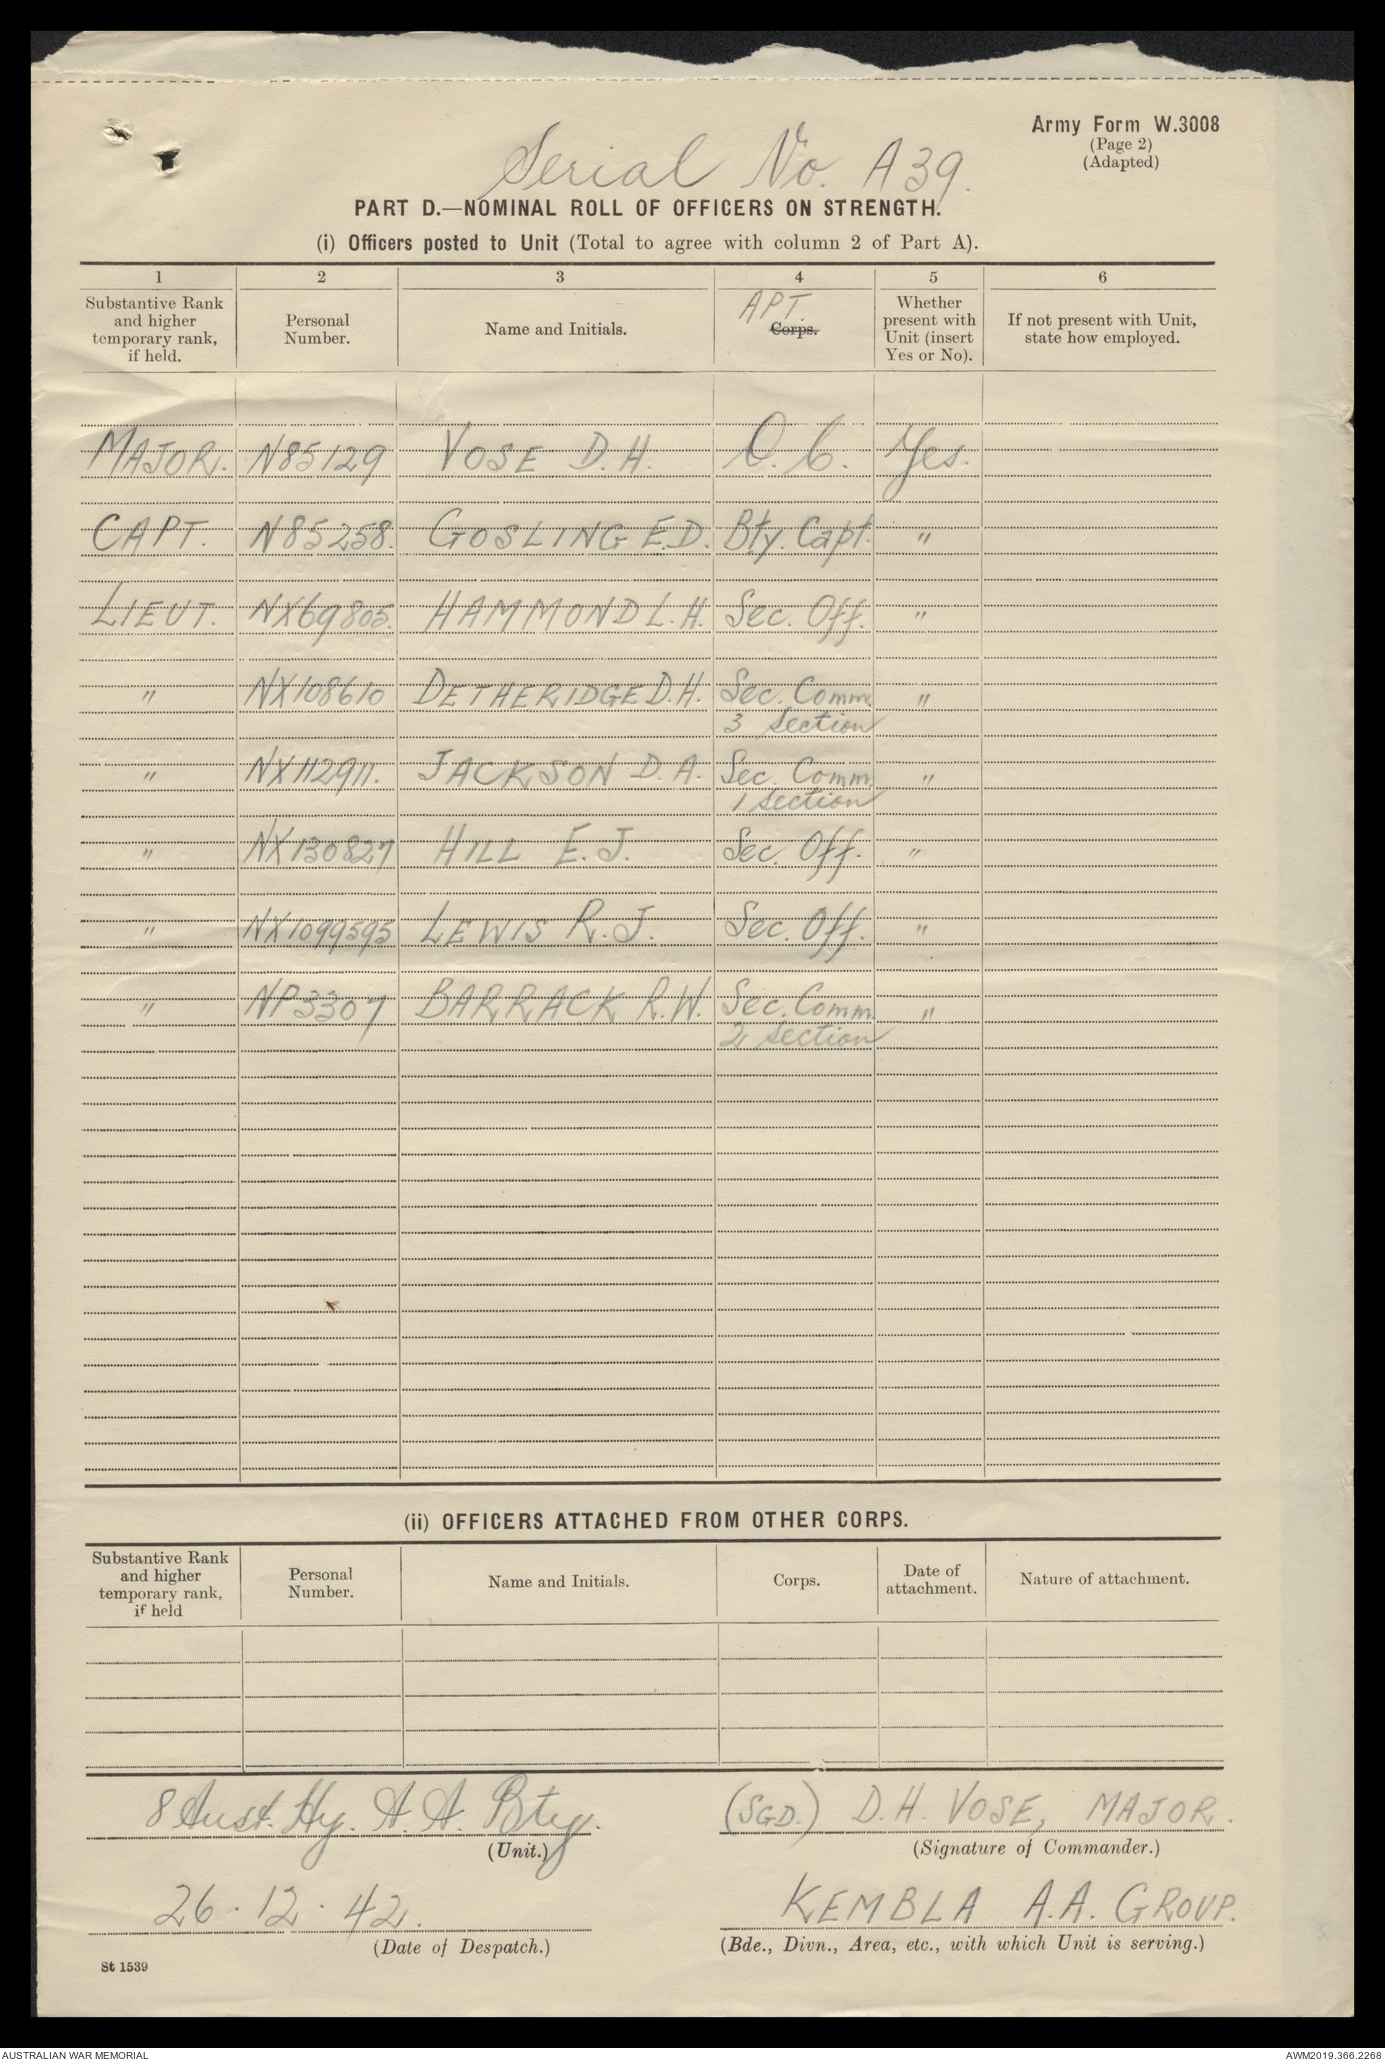 Army Form W.3008
(Page 2)
(Adapted)
Serial No. A39.
PART D.—NOMINAL ROLL OF OFFICERS ON STRENGTH.
(i) Officers posted to Unit (Total to agree with column 2 of Part A).
1 2 3 4 5 6
Substantive Rank and higher temporary rank, if held. Personal Number. Name and Initials. APT. Corps. Whether present with Unit (insert Yes or No). If not present with Unit, state how employed.
MAJOR. N85129 VOSE D.H. O.C. Yes.
CAPT. N85258. GOSLING E.D. Bty. Capt. "
LIEUT. NX69805. HAMMOND L.H. Sec. Off. "
" NX108610 DETHERIDGE D.H. Sec. Comm. "
3 section
" NX112911. JACKSON D.A. Sec. Comm. "
1 section
" NX130827 HILL E.J. Sec. Off. "
" NX1099595 LEWIS R.J. Sec. Off. "
" NP3307 BARRACK R.W. Sec. Comm. "
2 section
(ii) OFFICERS ATTACHED FROM OTHER CORPS.
Substantive Rank and higher temporary rank, if held Personal Number. Name and Initials. Corps. Date of attachment. Nature of attachment.
8 Aust. Hy. A.A. Bty. (SGD.) D.H. VOSE, MAJOR.
(Unit.) (Signature of Commander.)
26.12.42. KEMBLA A.A. GROUP.
(Date of Despatch.) (Bde., Divn., Area, etc., with which Unit is serving.)
St 1539
AUSTRALIAN WAR MEMORIAL AWM2019.366.2268